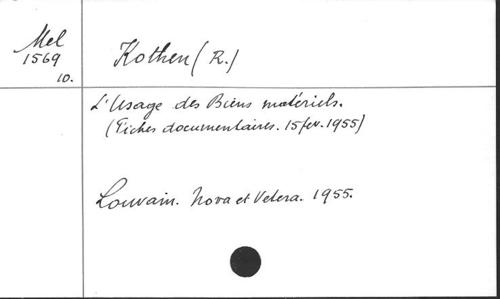 Mel
1569
10.
Kothen (R.)
L'Usage des Biens matériels.
(Fiches documentaires. 15 fev. 1955)
Louvain. Nova et Vetera. 1955.